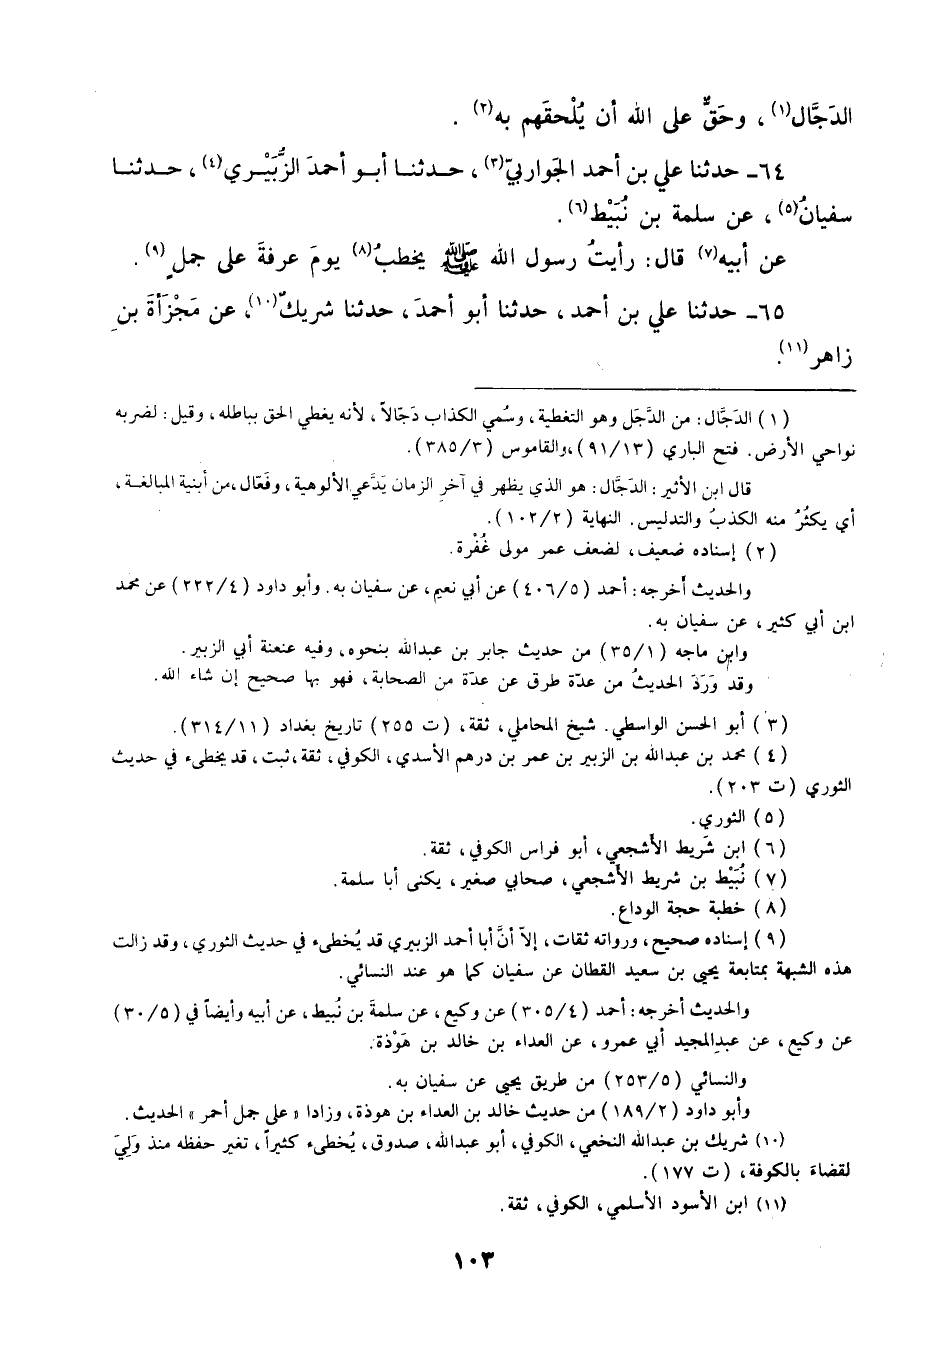 الدَجَّال(١)، وحَقٌّ على الله أن يُلْحقَهم به(٢) .
٦٤ـ حدثنا علي بن أحمد الجواربيّ(٣)، حدثنا أبو أحمدَ الزُّبَيْري(٤)، حدثنا
سفيانُ(٥)، عن سلمة بن نُبَيْط(٦).
عن أبيه(٧) قال: رأيتُ رسول الله ﷺ يخطبُ(٨) يومَ عرفةَ على جملٍ(٩) .
٦٥ـ حدثنا علي بن أحمد، حدثنا أبو أحمدَ، حدثنا شريكٌ(١٠)، عن مَجْزَأةَ بنِ
زاهر(١١).
(١) الدَجَّال: من الدَّجَل وهو التغطية، وسُمي الكذاب دَجّالاً، لأنه يغطي الحق بباطله، وقيل: لضربه
نواحي الأرض. فتح الباري (٩١/١٣)، والقاموس (٣٨٥/٣).
قال ابن الأثير: الدَجَّال: هو الذي يظهر في آخرِ الزمان يَدَّعي الألوهية، وفَعّال، من أبنية المبالغة،
أي يكثُرُ منه الكذبُ والتدليس. النهاية (١٠٢/٢).
(٢) إسناده ضعيف، لضعف عمر مولى غُفْرة.
والحديث أخرجه: أحمد (٤٠٦/٥) عن أبي نعيم، عن سفيان به. وأبو داود (٢٢٢/٤) عن محمد
ابن أبي كثير، عن سفيان به.
وابن ماجه (٣٥/١) من حديث جابر بن عبدالله بنحوه، وفيه عنعنة أبي الزبير.
وقد وَرَدَ الحديثُ من عدّة طرق عن عدّة من الصحابة، فهو بها صحيح إن شاء الله.
(٣) أبو الحسن الواسطي. شيخ المحاملي، ثقة، (ت ٢٥٥) تاريخ بغداد (٣١٤/١١).
(٤) محمد بن عبدالله بن الزبير بن عمر بن درهم الأسدي، الكوفي، ثقة، ثبت، قد يخطىء في حديث
الثوري (ت ٢٠٣).
(٥) الثوري.
(٦) ابن شَريط الأشجعي، أبو فراس الكوفي، ثقة.
(٧) نُبَيْط بن شريط الأشجعي، صحابي صغير، يكنى أبا سلمة.
(٨) خطبة حجة الوداع.
(٩) إسناده صحيح، ورواته ثقات، إلاّ أنَّ أبا أحمد الزبيري قد يُخطىء في حديث الثوري، وقد زالت
هذه الشبهة بمتابعة يحيى بن سعيد القطان عن سفيان كما هو عند النسائي.
والحديث أخرجه: أحمد (٣٠٥/٤) عن وكيع، عن سلمةَ بن نُبيط، عن أبيه وأيضاً في (٣٠/٥)
عن وكيع، عن عبدالمجيد أبي عمرو، عن العداء بن خالد بن هَوْذة.
والنسائي (٢٥٣/٥) من طريق يحيى عن سفيان به.
وأبو داود (١٨٩/٢) من حديث خالد بن العداء بن هوذة، وزادا «على جمل أحمر» الحديث.
(١٠) شريك بن عبدالله النخعي، الكوفي، أبو عبدالله، صدوق، يُخطىء كثيراً، تغير حفظه منذ وَلِيَ
لقضاءَ بالكوفة، (ت ١٧٧).
(١١) ابن الأسود الأسلمي، الكوفي، ثقة.
١٠٣